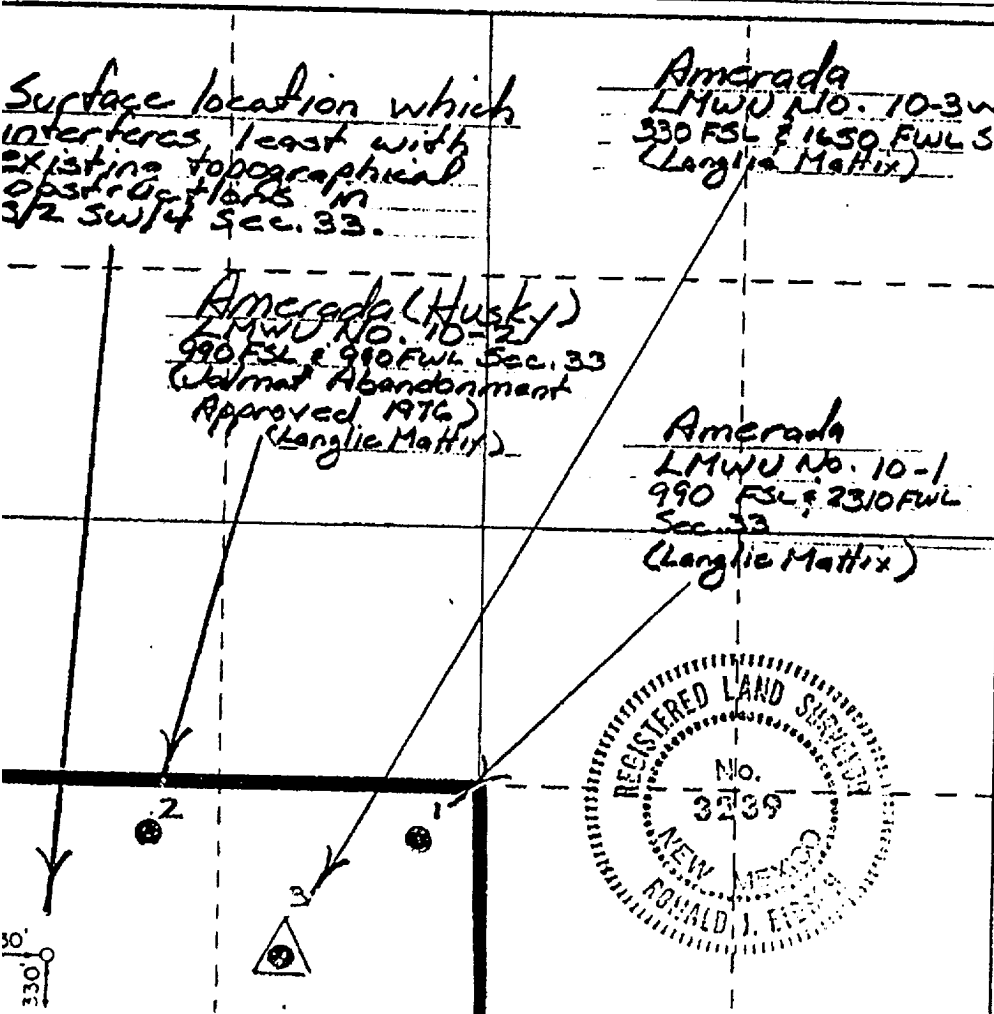 Surface location which
interferes least with
existing topographical
obstructions in
S/2 SW/4 Sec. 33.
Amerada
LMWU No. 10-3W
330 FSL & 1650 FWL S
(Langlie Mattix)
Amerada (Husky)
LMWU No. 10-2
990 FSL & 990 FWL Sec. 33
(Jalmat Abandonment
Approved 1976)
(Langlie Mattix)
Amerada
LMWU No. 10-1
990 FSL & 2310 FWL
Sec. 33
(Langlie Mattix)
REGISTERED LAND SURVEYOR
No.
3239
NEW MEXICO
RONALD J.
2
1
3
30'
330'